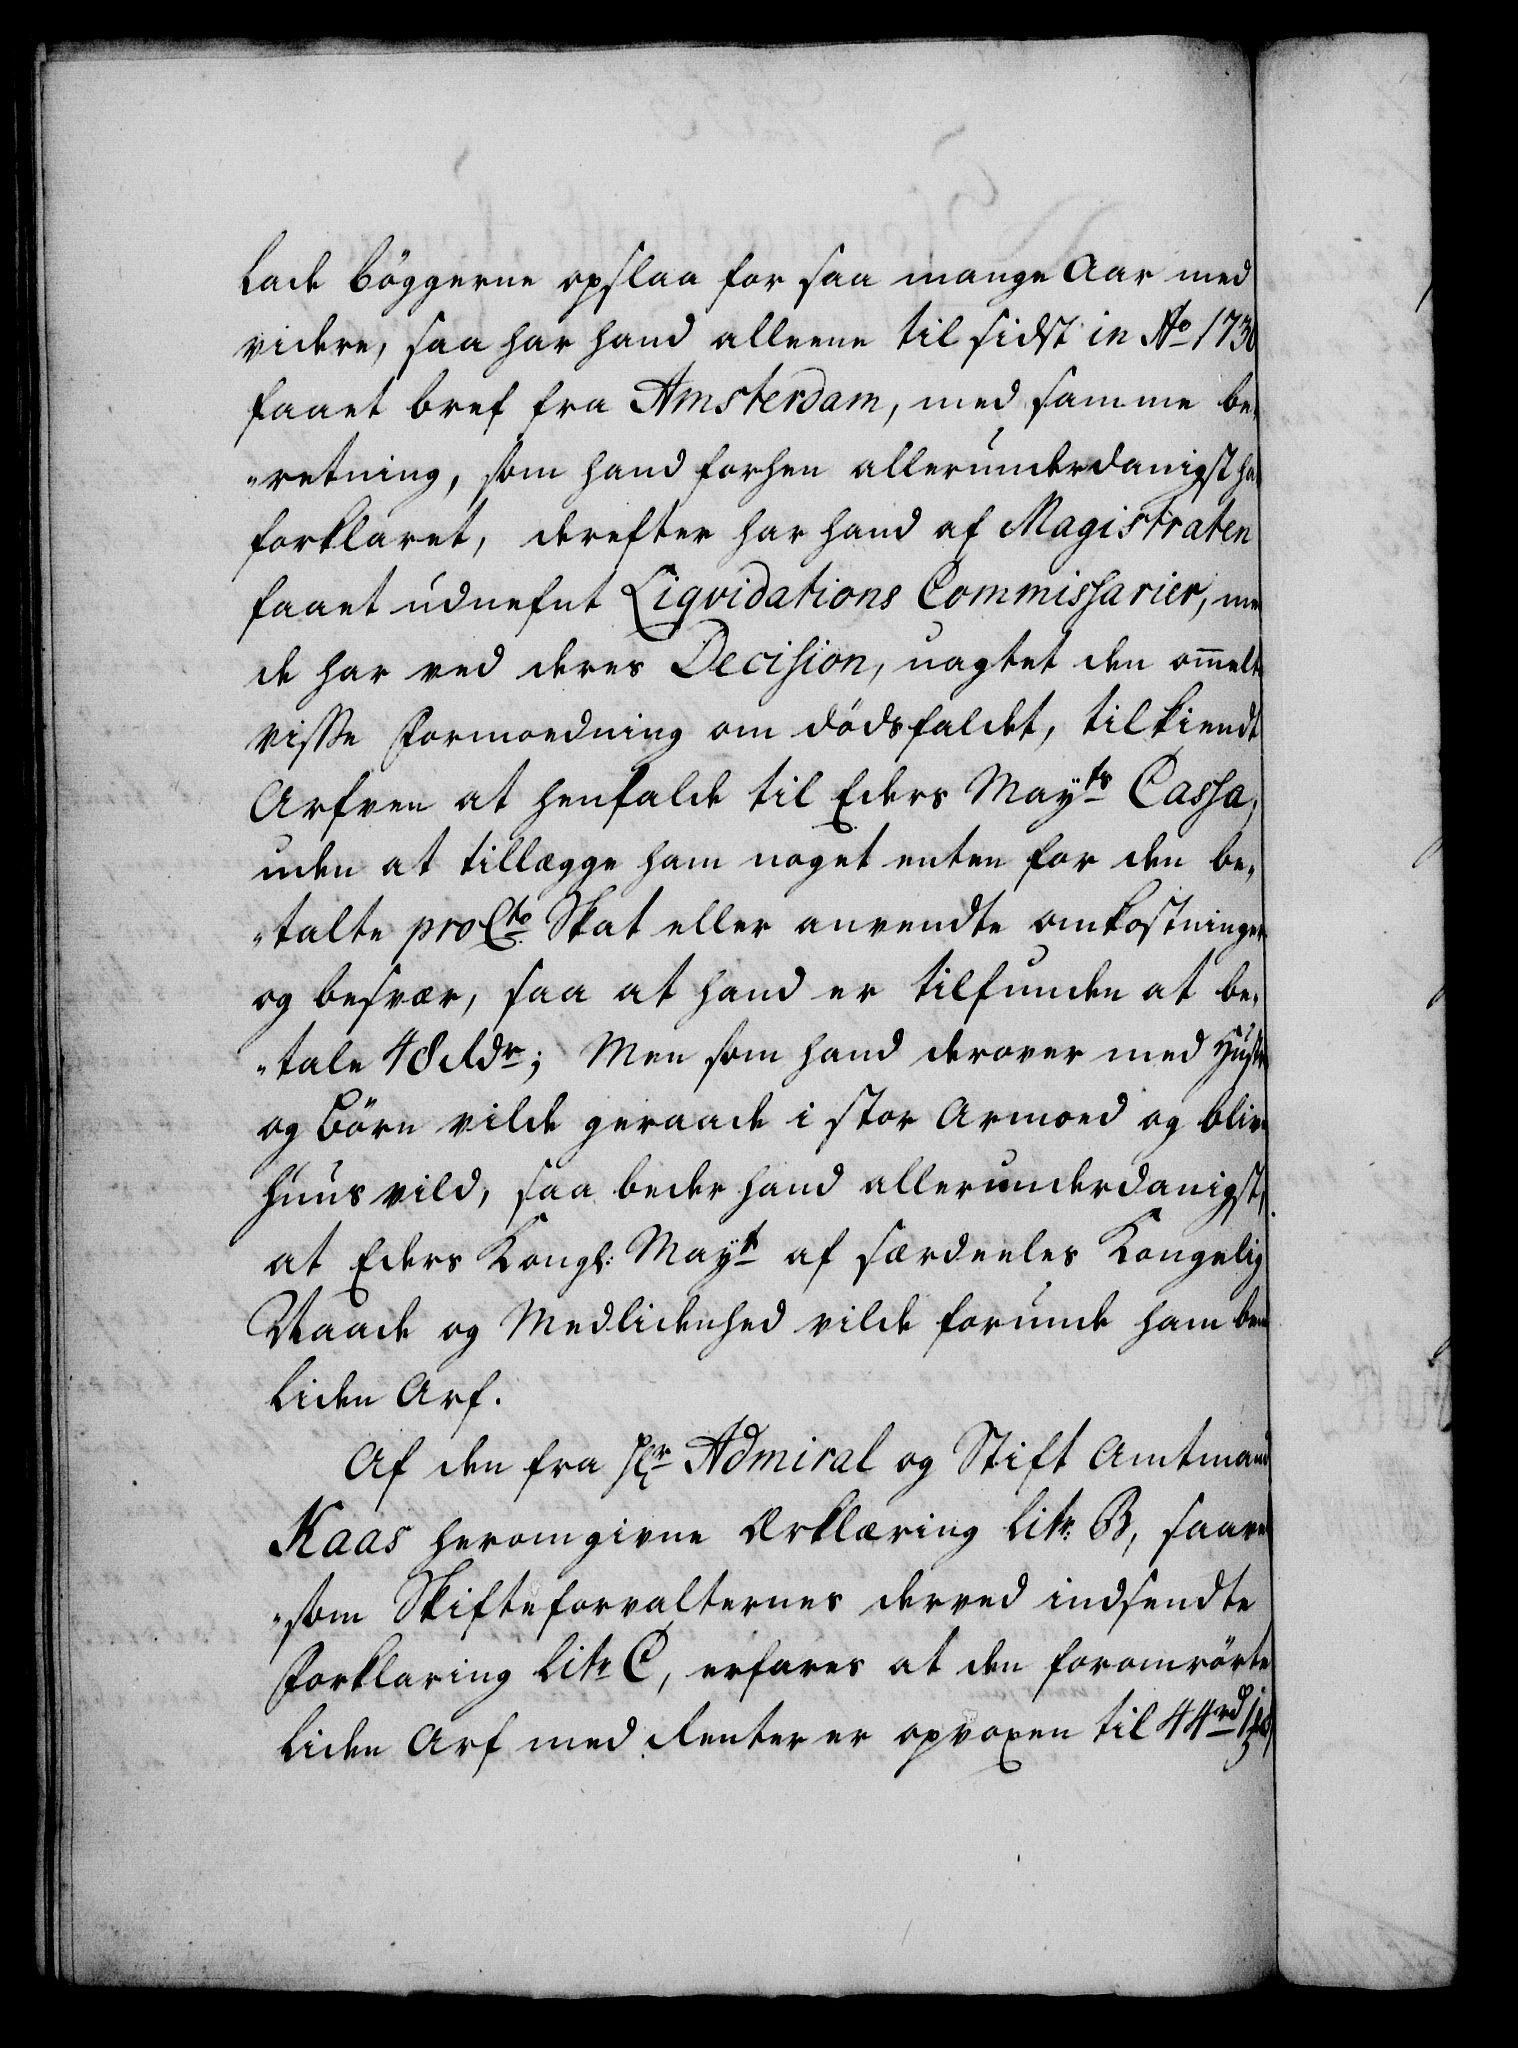 lade bøggerne opslaa for saa mange Aar med
videre, saa har hand alleene til sidst in Ao 1730
faaet bref fra Amsterdam, med samme be¬
„retning, som hand forhen allerunderdanigst ha
forklaret, derefter har hand af Magistraten
faaet udnefnt Liqvidations Commissarier, me
de har ved deres Decision, uagtet den om̄elte
visse Formoedning om dødsfaldet, tilkiendt
Arfven at henfalde til Eders Mayts Cassa,
uden at tillægge ham noget enten for den be¬
„talte pro Cto Skat eller anvendte omkostninger
og besvær, saa at hand er tilfunden at be¬
„tale 48 Rdr; Men som hand derover med Hustr
og Børn vilde geraade i stor Armoed og blive
huusvild, saa beder hand allerunderdanigst,
at Eders Kongl: Mayt af særdeeles Kongelig
Naade og Medlidenhed vilde forunde ham bem
liden Arf.
Af den fra Hr Admiral og Stift Amtmand
Kaas heromgivne Erklæring Litr: B, saavel
„som Skifteforvalternes derved indsendte
Forklaring Litr C, erfares at den foromrørte
liden Arf med Renter er opvoxen til 44 rd